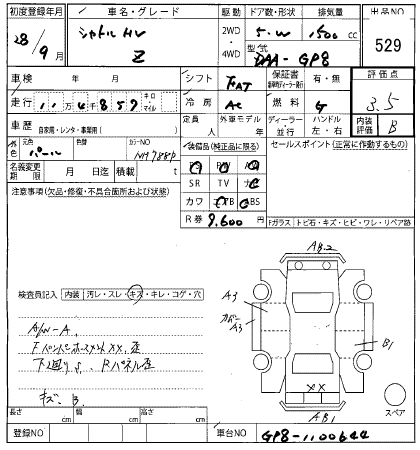 初度登録年月 車名・グレード 駆動 ドア数・形状 排気量 出品NO
28/9月 シャトル HV Z 2WD 4WD 5.W 1500cc 529
型式 DAA-GP8
車検 年 月 シフト FAT 保証書 有・無 評価点
走行 11万4857 キロ・マイル 冷房 AC 燃料 G 3.5
車歴 自家用・レンタ・事業用( ) 定員 人 外車モデル 年 ディーラー 並行 ハンドル 左・右 内装評価 B
外色 元色 パール 色替 カラーNO NH788P 装備品(純正品に限る) セールスポイント(正常に作動するもの)
名義変更期限 月 日迄 積載 t
SR TV
注意事項(欠品・修復・不具合箇所および状態) カワ ABS
R券 9,600円
Fガラス トビ石・キズ・ヒビ・ワレ・リペア跡
AB.2
A3
カバー A3
B1
検査員記入 内装 汚レ・スレ・キズ・キレ・コゲ・穴
A/W-A
XX
キズ、B
AB1
スペア
長さ cm 幅 cm 高さ cm
登録NO 車台NO GP8-1100644